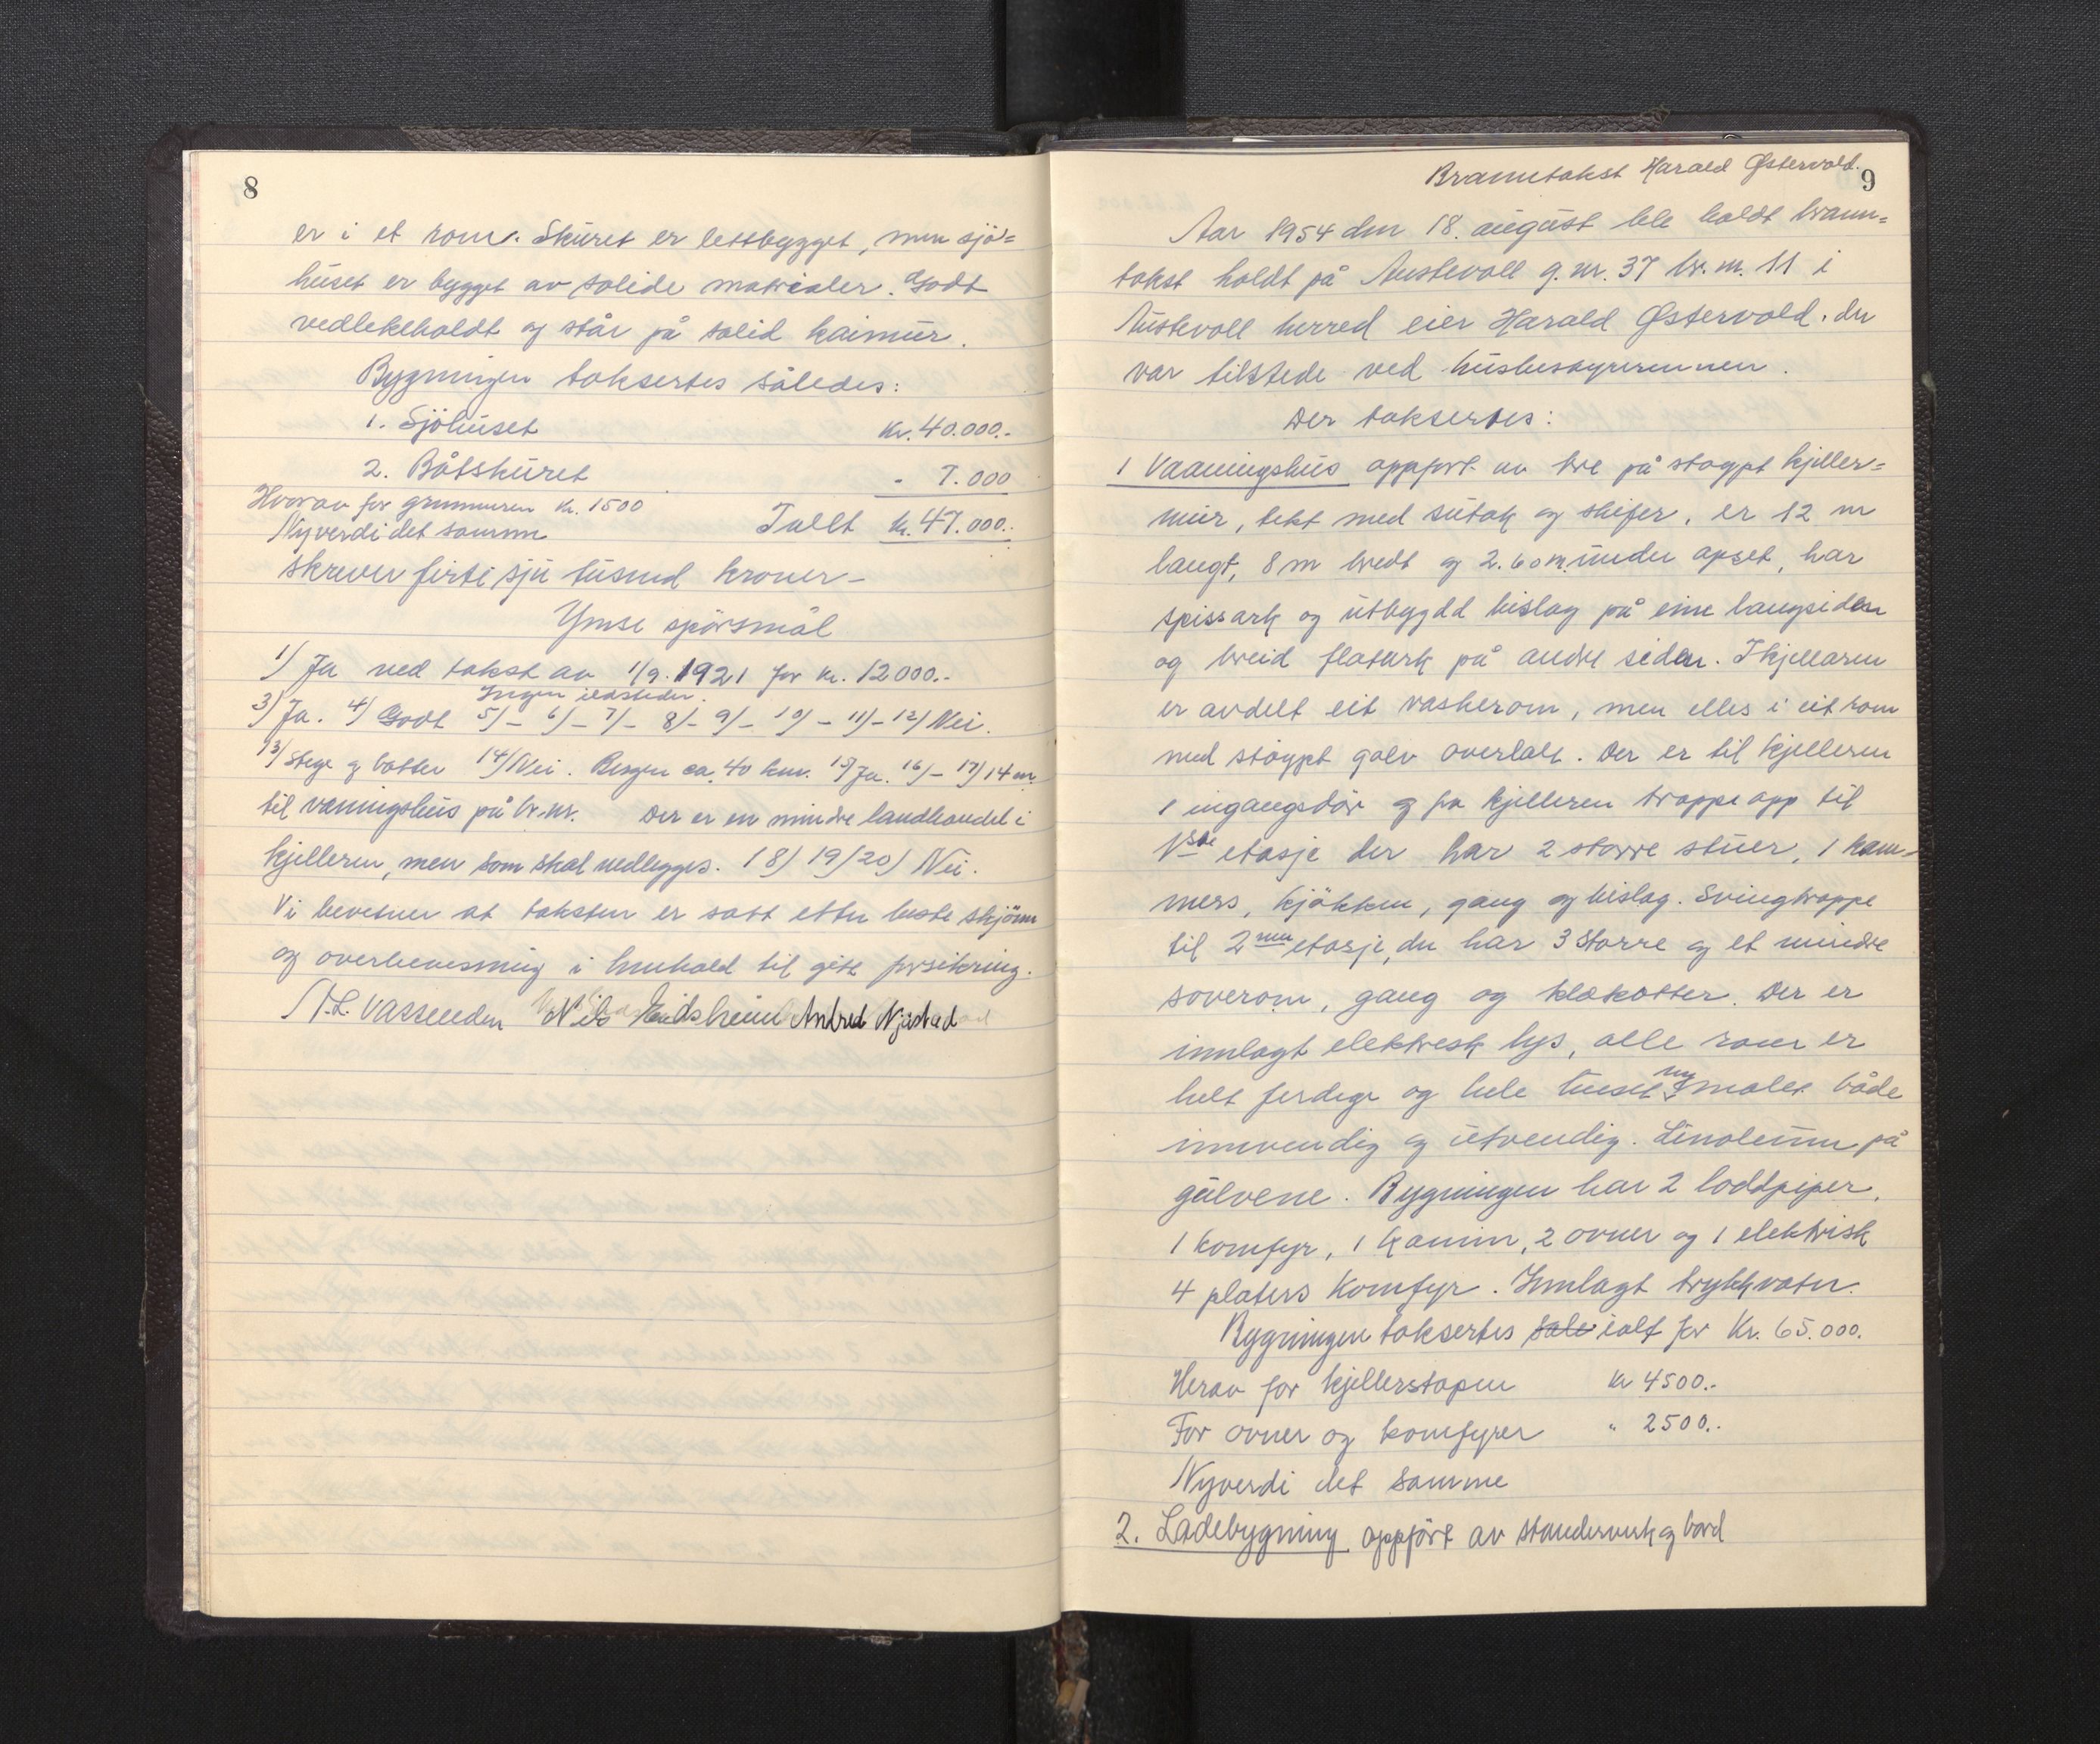 8
er i et rom. Skuret er lettbygget, men sjø=
huset er bygget av solide materialer. Godt
vedlikeholdt og står på solid kaimur.
Bygningen taksertes således:
1. Sjöhuset Kr. 40.000.-
2. Båtskuret - 7.000
Hvorav for grunnmuren kr. 1500
Nyverdi det samme Ialt kr. 47.000.-
skriver førti sju tusend kroner -
Ymse spörsmål
1/ Ja ved takst av 1/9. 1921 for kr. 12000.-
Ingen ildsteder.
3/ Ja. 4/ Godt 5/- 6/- 7/- 8/- 9/- 10/- 11/- 12/ Nei.
13/ Stege og bøtter 14/ Nei. Bergen ca. 40 km. 15/ Ja. 16/- 17/ 14 m.
til vaningshus på br.nr. Der er en mindre landhandel i
kjelleren, men som skal nedlegges. 18/ 19/ 20/ Nei.
Vi bevitner at taksten er satt etter beste skjönn
og overbevisning i henhold til gitt forsikring.
N.L. Vassenden Nils Eidsheim Andred Njåstad
Branntakst Harald Østervold.
9
Aar 1954 den 18. august ble holdt brann=
takst holdt på Austevoll g.nr. 37 br.nr. 11 i
Austevoll herred eier Harald Østervold. der
var tilstede ved husbestyrerinnen.
Der taksertes:
1 Vaaningshus oppført av tre på støypt kjeller=
mur, tekt med sutak og skifer, er 12 m
langt, 8 m bredt og 2.60 m. under opset, har
spissark og utbygdd bislag på eine langsiden
og breid flatark på andre siden. I kjellaren
er avdelt eit vaskerom, men elles i eit rom
med støypt golv overlalt. Der er til kjelleren
1 ingangsdör og fra kjelleren trappe opp til
1ste etasje der har 2 större stuer, 1 kam-
mers, kjökken, gang og bislag. Svingtrappe
til 2nen etasje, der har 3 større og et mindre
soverom, gang og klækotter. Der er
innlagt elektresk lys, alle rom er
helt ferdige og hele huset ny malet både
innvendig og utvendig. Linoleum på
gulvene. Bygningen har 2 loddpiper,
1 komfyr, 1 kamin, 2 ovner og 1 elektrisk
4 platers Komfyr. Innlagt trykkvatn.
Bygningen taksertes således ialt for Kr. 65.000.
Herav for kjellerstøpen kr 4500.-
For ovner og komfyrer " 2500.-
Nyverdi det samme
2. Ladebygning oppført av standerverk og bord